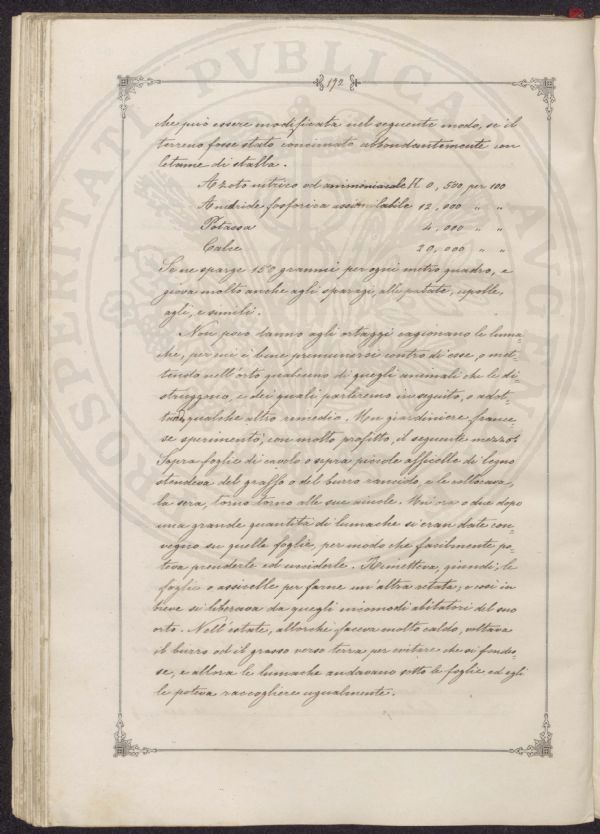 192
che può essere modificata nel seguente modo, se il
terreno fosse stato concimato abbondantemente con
letame di stalla.
Azoto nitrico od ammoniacale K 0,500 per 100
Anidride fosforica assimilabile 12,000 " "
Potassa 4,000 " "
Calce 20,000 " "
Se ne sparge 150 grammi per ogni metro quadro, e
giova molto anche agli sparagi, alle patate, cipolle,
agli, e simili.
Non poco danno agli ortaggi cagionano le luma-
che, per cui è bene premunirsi contro di esse, o met-
tendo nell'orto qualcuno di quegli animali che le di-
struggono, e dei quali parleremo in seguito, o adot-
tando qualche altro rimedio. Un giardiniere france-
se sperimentò, con molto profitto, il seguente mezzo:
Sopra foglie di cavolo o sopra piccole assicelle di legno
stendeva del grasso o del burro rancido, e le collocava,
la sera, torno torno alle sue aiuole. Un'ora o due dopo
una grande quantità di lumache si eran date con-
vegno su quelle foglie, per modo che facilmente po-
teva prenderle ed ucciderle. Rimetteva, quindi, le
foglie o assicelle per farne un'altra retata, e così in
breve si liberava da quegli incomodi abitatori del suo
orto. Nell'estate, allorchè faceva molto caldo, voltava
il burro od il grasso verso terra per evitare che si fondes-
se, e allora le lumache andavano sotto le foglie ed egli
le poteva raccogliere ugualmente.
PROSPERITATI PVBLICAE AVGENDAE